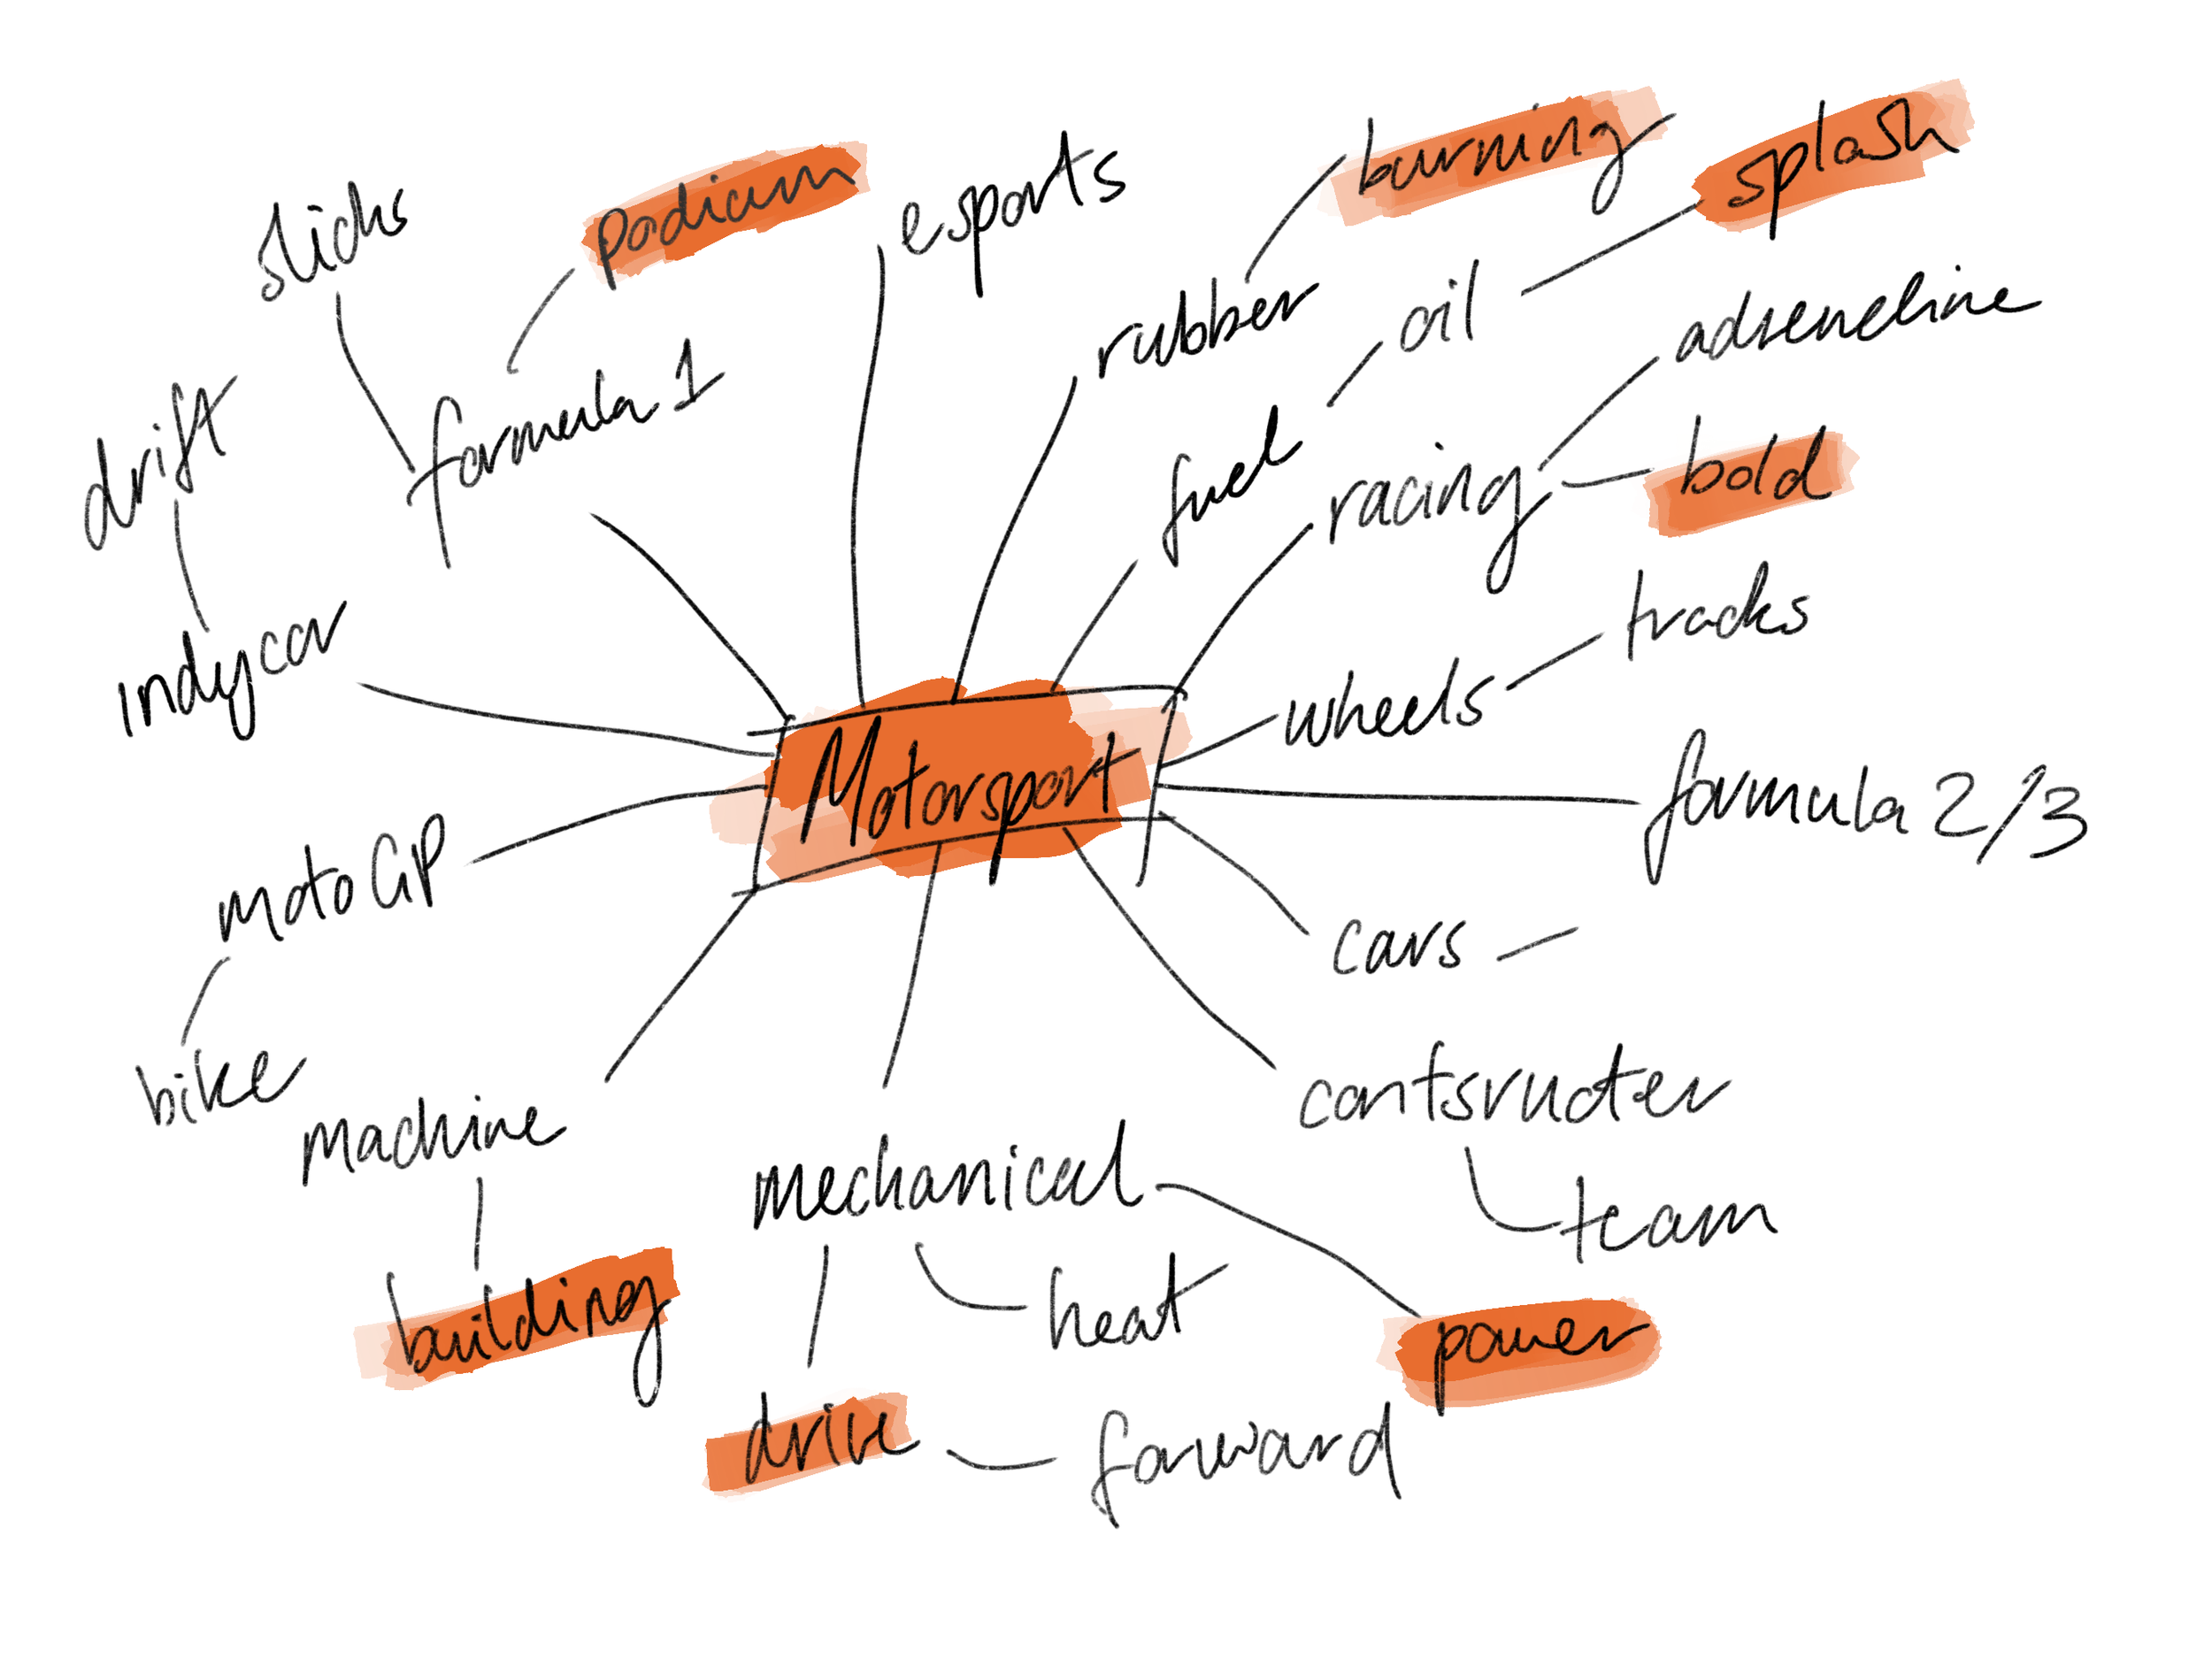 burning
splash
podium
esports
slicks
adreneline
rubber
oil
formula 1
drift
fuel
racing
bold
tracks
indycar
wheels
Motorsport
formula 2/3
motoGP
cars
bike
machine
contsructer
mechanical
team
building
heat
power
drive
forward